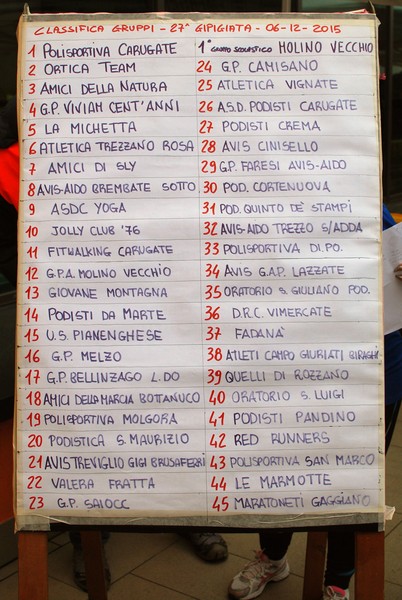 CLASSIFICA GRUPPI - 27^ GIPIGIATA - 06-12-2015
1 POLISPORTIVA CARUGATE
2 ORTICA TEAM
3 AMICI DELLA NATURA
4 G.P. VIVIAM CENT'ANNI
5 LA MICHETTA
6 ATLETICA TREZZANO ROSA
7 AMICI DI SLY
8 AVIS-AIDO BREMBATE SOTTO
9 ASDC YOGA
10 JOLLY CLUB '76
11 FITWALKING CARUGATE
12 G.P.A. MOLINO VECCHIO
13 GIOVANE MONTAGNA
14 PODISTI DA MARTE
15 U.S. PIANENGHESE
16 G.P. MELZO
17 G.P. BELLINZAGO L.DO
18 AMICI DELLA MARCIA BOTTANUCO
19 POLISPORTIVA MOLGORA
20 PODISTICA S. MAURIZIO
21 AVIS TREVIGLIO GIGI BRUSAFERRI
22 VALERA FRATTA
23 G.P. SAIOCC
1° GRUPPO SCOLASTICO MOLINO VECCHIO
24 G.P. CAMISANO
25 ATLETICA VIGNATE
26 A.S.D. PODISTI CARUGATE
27 PODISTI CREMA
28 AVIS CINISELLO
29 G.P. FARESI AVIS-AIDO
30 POD. CORTENUOVA
31 POD. QUINTO DE' STAMPI
32 AVIS-AIDO TREZZO S/ADDA
33 POLISPORTIVA DI.PO.
34 AVIS G.A.P. LAZZATE
35 ORATORIO S. GIULIANO POD.
36 D.R.C. VIMERCATE
37 FADANA'
38 ATLETI CAMPO GIURIATI BIRAGHI
39 QUELLI DI ROZZANO
40 ORATORIO S. LUIGI
41 PODISTI PANDINO
42 RED RUNNERS
43 POLISPORTIVA SAN MARCO
44 LE MARMOTTE
45 MARATONETI GAGGIANO